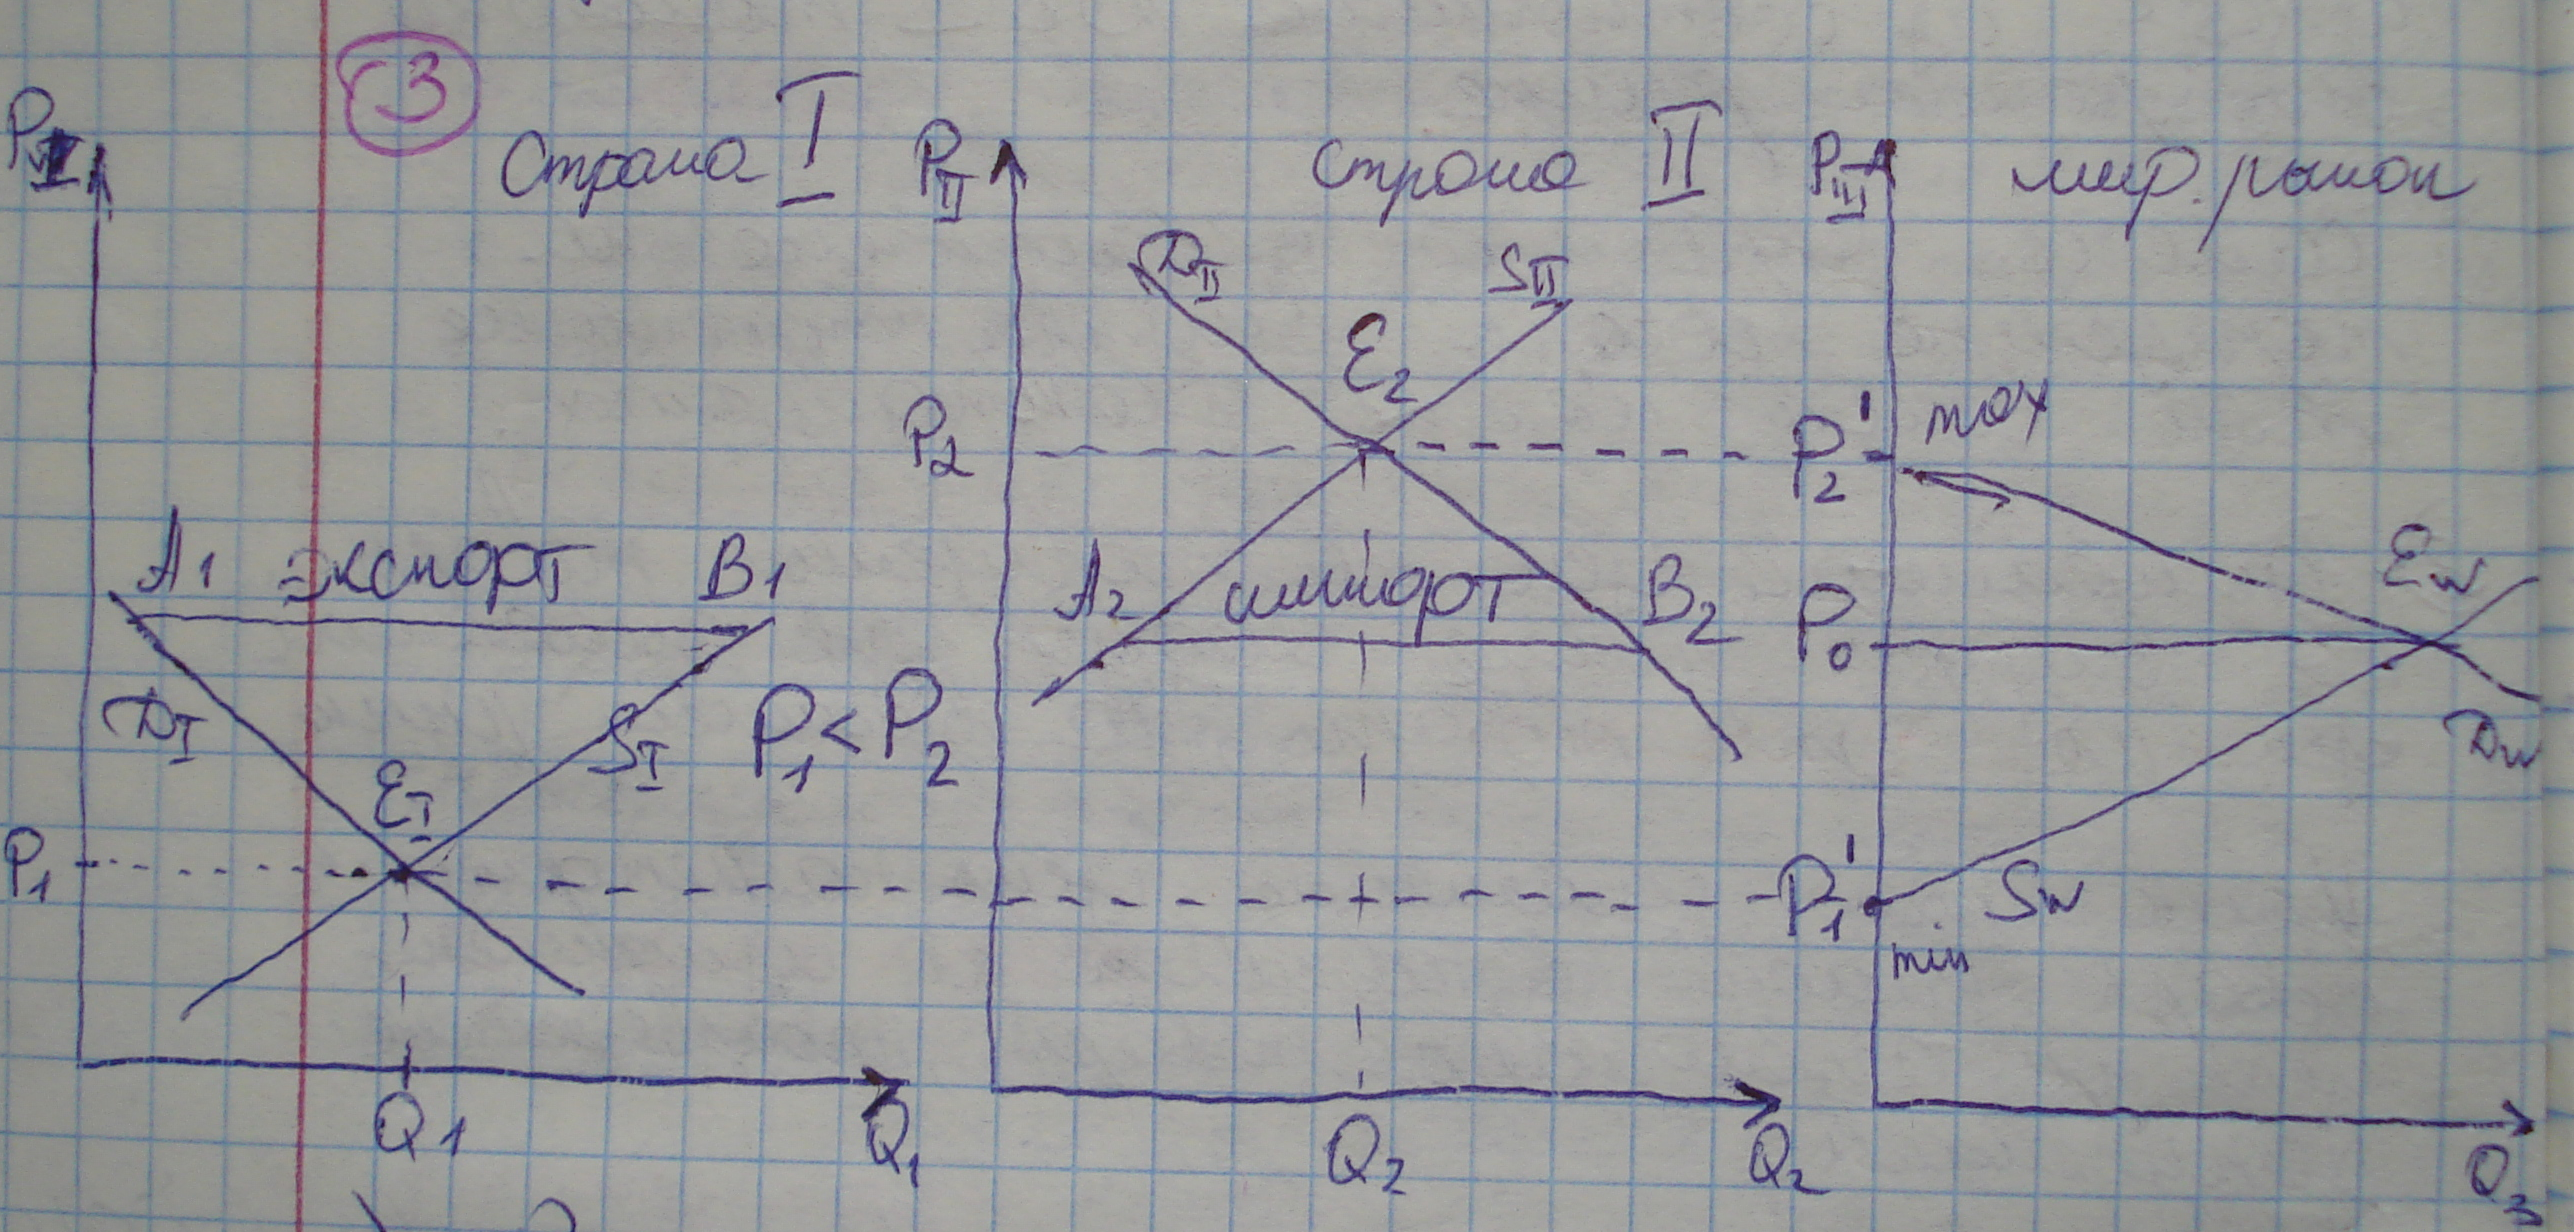 3
P_I Страна I P_II страна II P_III мир. рынок
D_II S_II
E_2
P_2 P_2' max
A_1 экспорт B_1 A_2 импорт B_2 P_0 E_w
D_I S_I P_1 < P_2 D_w
E_I
P_1 P_1' S_w
min
Q_1 Q_1 Q_2 Q_2 Q_3